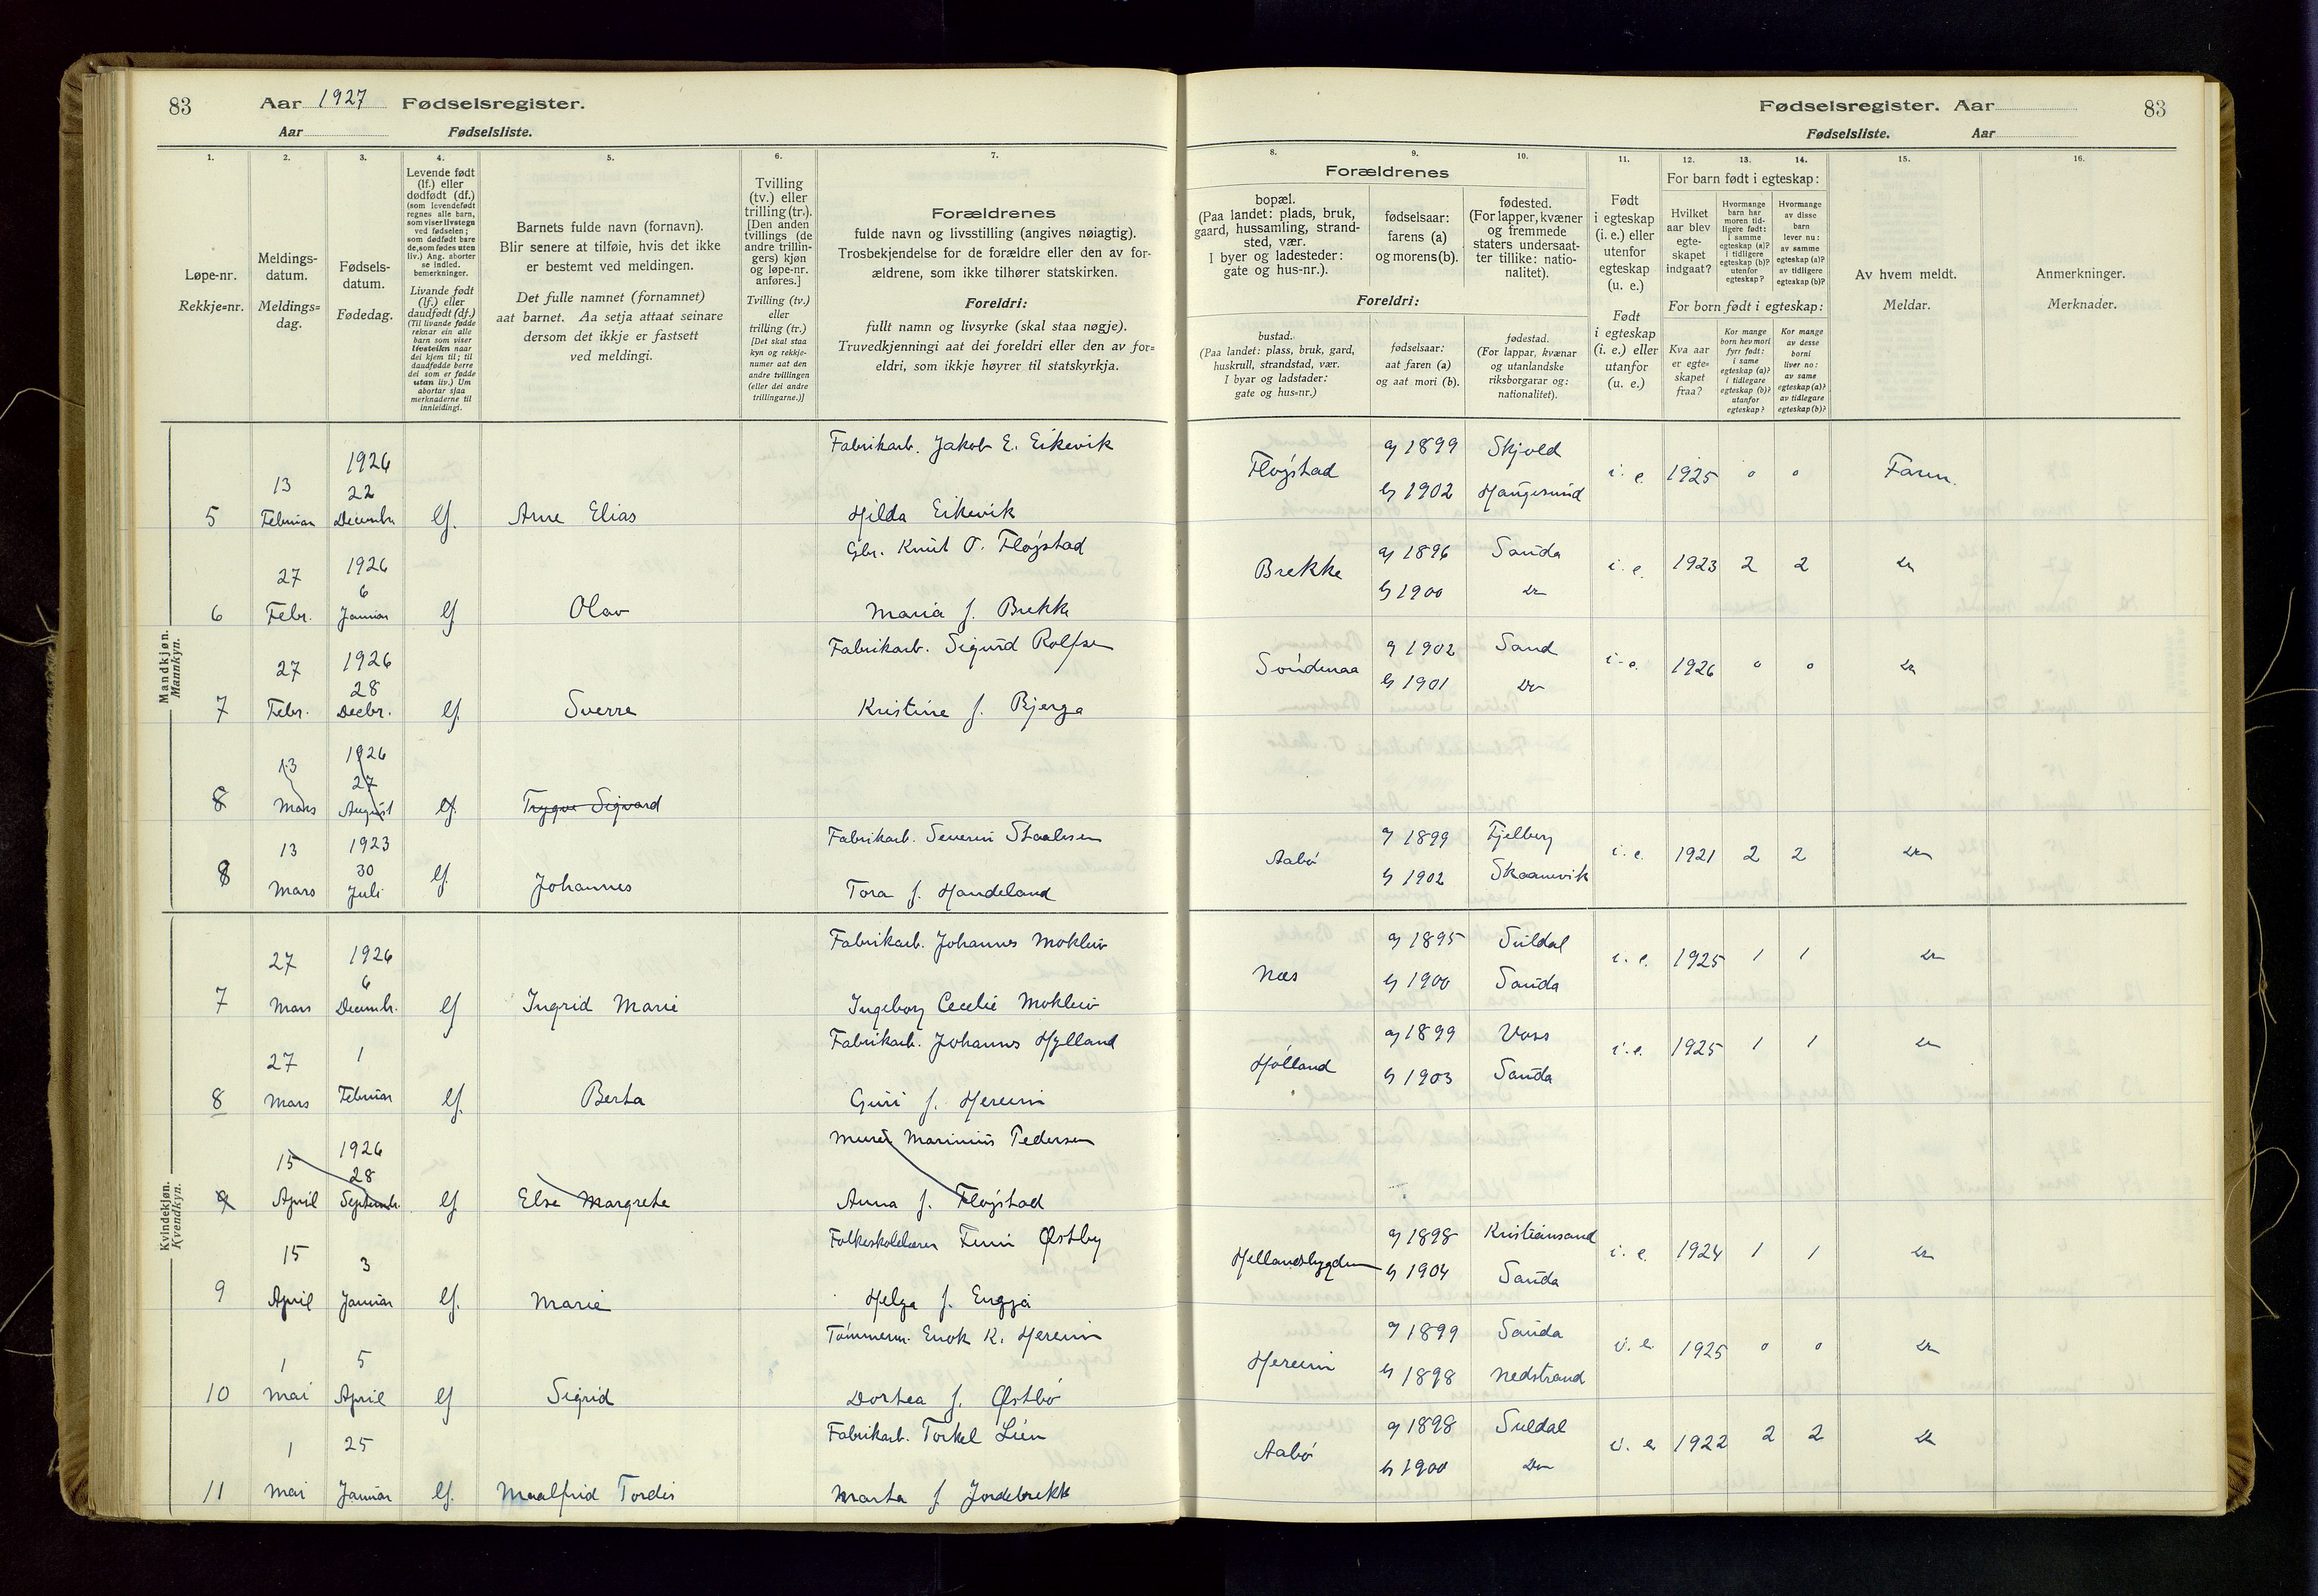 83 Aar 1927 Fødselsregister.
Aar Fødselsliste.
Fødselsregister. Aar 83
Fødselsliste. Aar
1. 2. 3. 4. 5. 6. 7.
8. 9. 10. 11. 12. 13. 14. 15. 16.
Løpe-nr.
Rekkje=nr.
Meldings-
datum.
Meldings=
dag.
Fødsels-
datum.
Fødedag.
Levende født
(lf.) eller
dødfødt (df.)
(som levendefødt
regnes alle barn,
som viser livstegn
ved fødselen;
som dødfødt bare
de, som fødes uten
liv.) Ang. aborter
se indled.
bemerkninger.
Livande født
(lf.) eller
daudfødt (df.)
(Til livande fødde
reknar ein alle
barn som viser
livsteikn naar
dei kjem til; til
daudfødde berre
dei som er fødde
utan liv.) Um
abortar sjaa
merknaderne til
innleidingi.
Barnets fulde navn (fornavn).
Blir senere at tilføie, hvis det ikke
er bestemt ved meldingen.
Det fulle namnet (fornamnet)
aat barnet. Aa setja attaat seinare
dersom det ikkje er fastsett
ved meldingi.
Tvilling
(tv.) eller
trilling (tr.).
[Den anden
tvillings (de
andre trillin-
gers) kjøn
og løpe-nr.
anføres.]
Tvilling (tv.)
eller
trilling (tr.)
[Det skal staa
kyn og rekkje-
numer aat den
andre tvillingen
(eller dei andre
trillingarne.)]
Forældrenes
fulde navn og livsstilling (angives nøiagtig).
Trosbekjendelse for de forældre eller den av for-
ældrene, som ikke tilhører statskirken.
Foreldri:
fullt namn og livsyrke (skal staa nøgje).
Truvedkjenningi aat dei foreldri eller den av for=
eldri, som ikkje høyrer til statskyrkja.
Forældrenes
bopæl.
(Paa landet: plads, bruk,
gaard, hussamling, strand-
sted, vær.
I byer og ladesteder:
gate og hus-nr.).
fødselsaar:
farens (a)
og morens (b).
fødested.
(For lapper, kvæner
og fremmede
staters undersaat-
ter tillike: natio-
nalitet).
Foreldri:
bustad.
(Paa landet: plass, bruk, gard,
huskrull, strandstad, vær.
I byar og ladstader:
gate og hus=nr.)
fødselsaar:
aat faren (a)
og aat mori (b).
fødestad.
(For lappar, kvænar
og utanlandske
riksborgarar og:
nationalitet).
Født
i egteskap
(i. e.) eller
utenfor
egteskap
(u. e.)
Født
i egteskap
(i. e.) eller
utanfor
(u. e.)
For barn født i egteskap:
Hvilket
aar blev
egte-
skapet
indgaat?
Hvormange
barn har
moren tid-
ligere født:
i samme
egteskap (a)?
i tidligere
egteskap (b)?
utenfor
egteskap?
Hvormange
av disse
barn
lever nu:
av samme
egteskap (a)?
av tidligere
egteskap (b)?
For born født i egteskap:
Kva aar
er egte=
skapet
fraa?
Kor mange
born hev mori
fyrr født:
i same
egteskap (a)?
i tidlegare
egteskap (b)?
utanfor
egteskap?
Kor mange
av desse
borni
liver no:
av same
egteskap (a)?
av tidlegare
egteskap (b)?
Av hvem meldt.
Meldar.
Anmerkninger.
Merknader.
Mandkjøn.
Mannkyn.
5 13 Februar 1926 22 Decembr. lf. Arne Elias Fabrikarb. Jakob E. Eikevik
Hilda Eikevik
Fløgstad a) 1899 Skjold i. e. 1925 0 0 Faren.
b) 1902 Haugesund
6 27 Febr. 1926 6 Januar lf Olav Gbr. Knut O. Fløgstad
Maria f. Brekke
Brekke a) 1896 Sauda i. e. 1923 2 2 Do
b) 1900 Do
7 27 Febr. 1926 28 Decbr. lf. Sverre Fabrikarb. Sigurd Rolfsen
Kristine f. Bjerga
Söndenaa a) 1902 Sand i. e. 1926 0 0 Do
b) 1901 Do
8 13 Mars 1926 27 August lf. Trygve Sigvard
8 13 Mars 1923 30 Juli lf. Johannes Fabrikarb. Severin
Tora f. Handeland
Aabö a) 1899 Fjelberg i. e. 1921 2 2 Do
b) 1902 Skaanevik
Kvindekjøn.
Kvendkyn.
7 27 Mars 1926 6 Decembr. lf Ingrid Marie Fabrikarb. Johannes Mokleiv
Ingeborg Cecelie Mokleiv
Næs a) 1895 Suldal i. e. 1925 1 1 Do
b) 1900 Sauda
8 27 Mars 1 Februar lf. Berta Fabrikarb. Johannes Hylland
Guri f. Hereim
Hölland a) 1899 Voss i. e. 1925 1 1 Do
b) 1903 Sauda
9 15 April 1926 28 Septembr. lf Else Margrete Murer Marinius Pedersen
Anna f. Fløgstad
9 15 April 3 Januar lf. Marie Folkeskolelærer Finn Østby
Helga f. Enggja
Hellandsbygden a) 1898 Kristiansand i. e. 1924 1 1 Do
b) 1904 Sauda
10 1 Mai 5 April lf Sigrid Tömmerm. Enok K. Hereim
Dortea f. Østbö
Hereim a) 1899 Sauda i. e. 1925 0 0 Do
b) 1898 Nedstrand
11 1 Mai 25 Januar lf. Maalfrid Tordis Fabrikarb. Torkel Lien
Marta f. Jordebrekk
Aabö a) 1898 Suldal i. e 1922 2 2 Do
b) 1900 Do